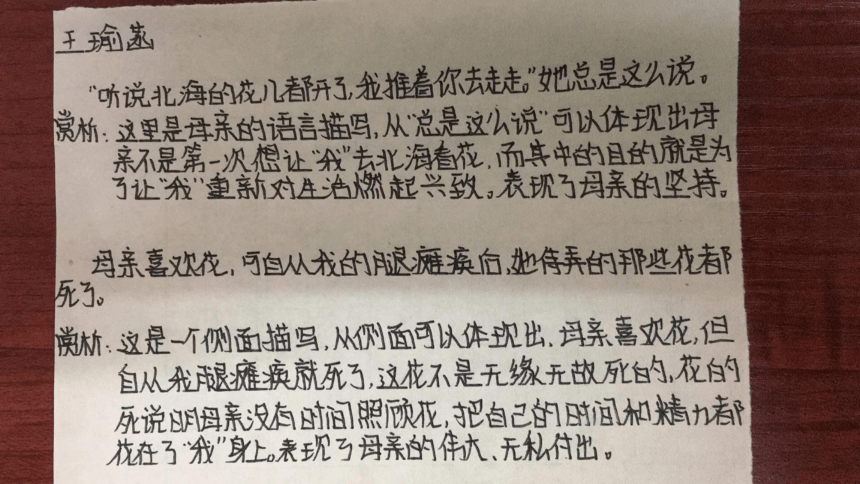 王瑜
"听说北海的花儿都开了,我推着你去走走。"她总是这么说。
赏析:这里是母亲的语言描写,从"总是这么说"可以体现出母
亲不是第一次想让"我"去北海看花,而其中的目的就是为
了让"我"重新对生活燃起兴致。表现了母亲的坚持。
母亲喜欢花,可自从我的腿瘫痪后,她侍弄的那些花都
死了。
赏析:这是一个侧面描写,从侧面可以体现出、母亲喜欢花,但
自从我腿瘫痪就死了,这花不是无缘无故死的,花的
死说明母亲没有时间照顾花,把自己的时间和精力都
花在了"我"身上。表现了母亲的伟大、无私付出。